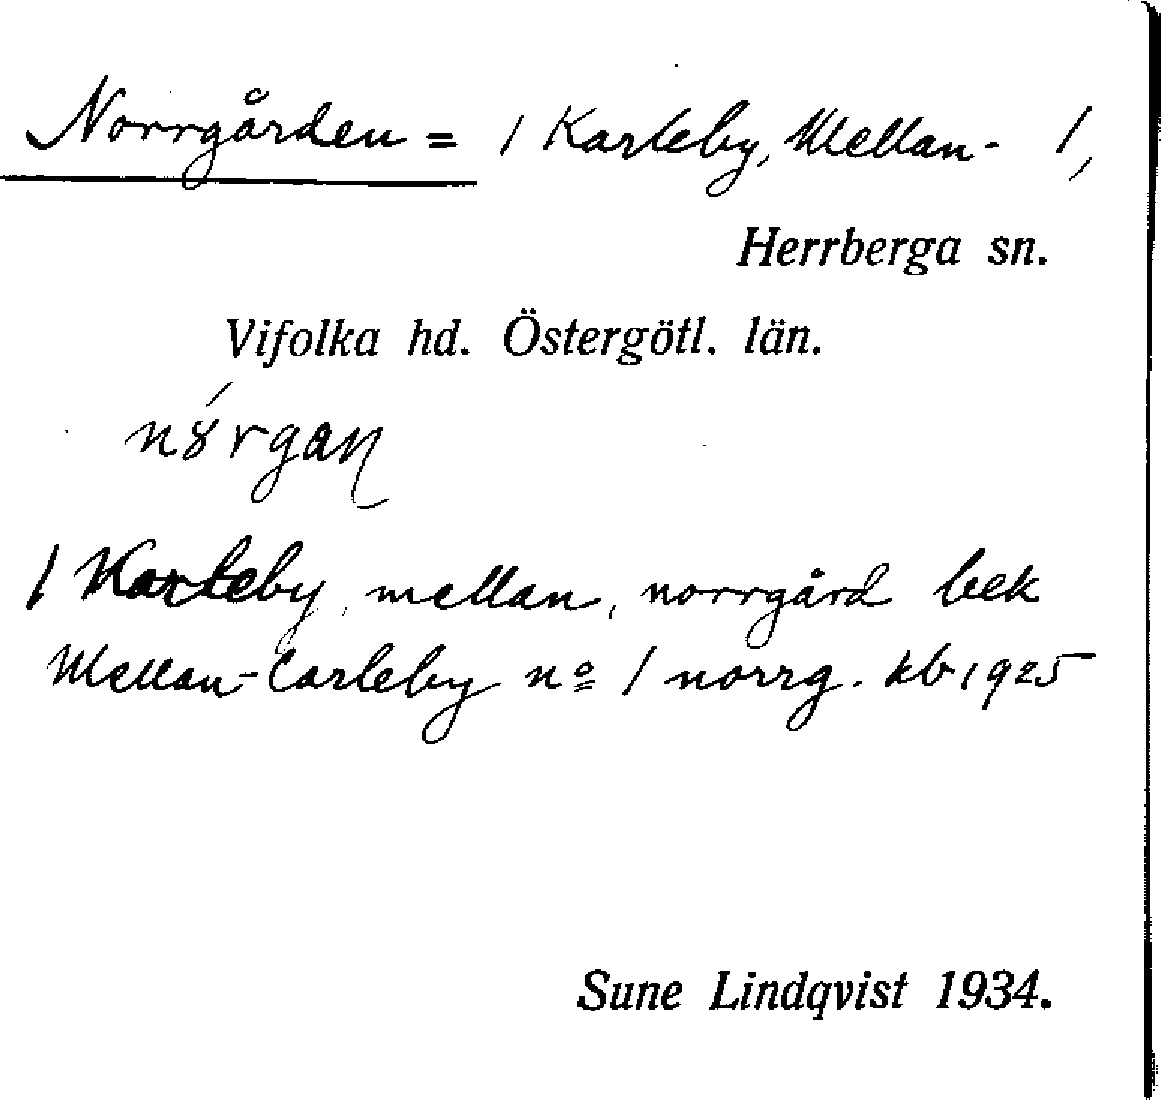 Norrgården = 1 Karleby, Mellan- 1,
Herrberga sn.
Vifolka hd. Östergötl. län.
1 Karleby, mellan, norrgård bek
Mellan-Carleby nº 1 norrg. kb 1925
Sune Lindqvist 1934.